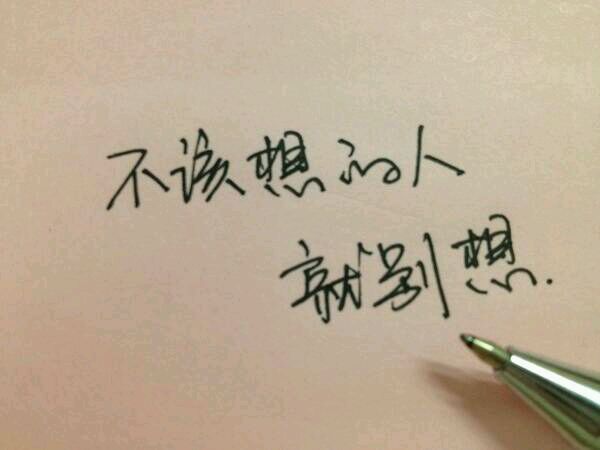 不该想的人
就别想.